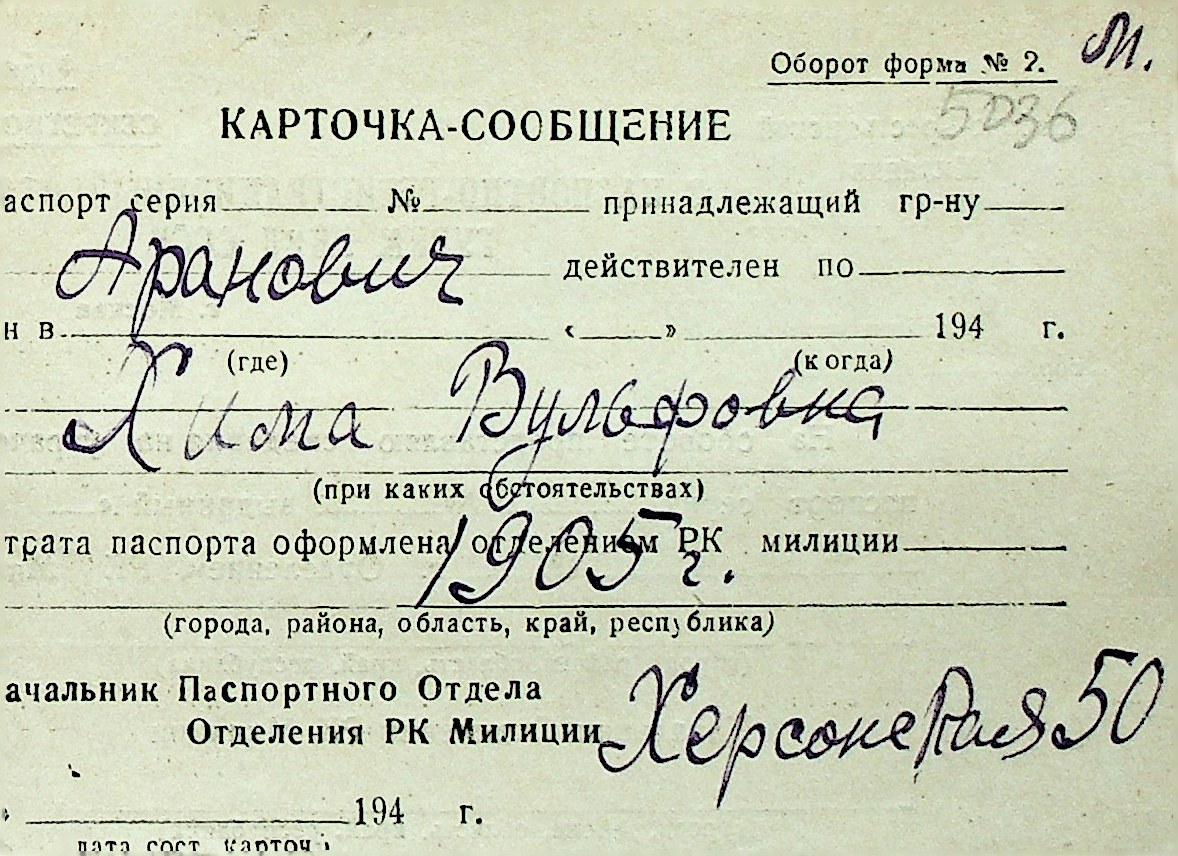 Оборот форма № 2. М.
5036
КАРТОЧКА-СООБЩЕНИЕ
аспорт серия № принадлежащий гр-ну
Аранович действителен по
н в « » 194 г.
(где) (когда)
Хима Вульфовна
(при каких обстоятельствах)
трата паспорта оформлена отделением РК милиции
1905 г.
(города, района, область, край, республика)
ачальник Паспортного Отдела
Отделения РК Милиции
Херсонская 50
» 194 г.
дата сост. карточ